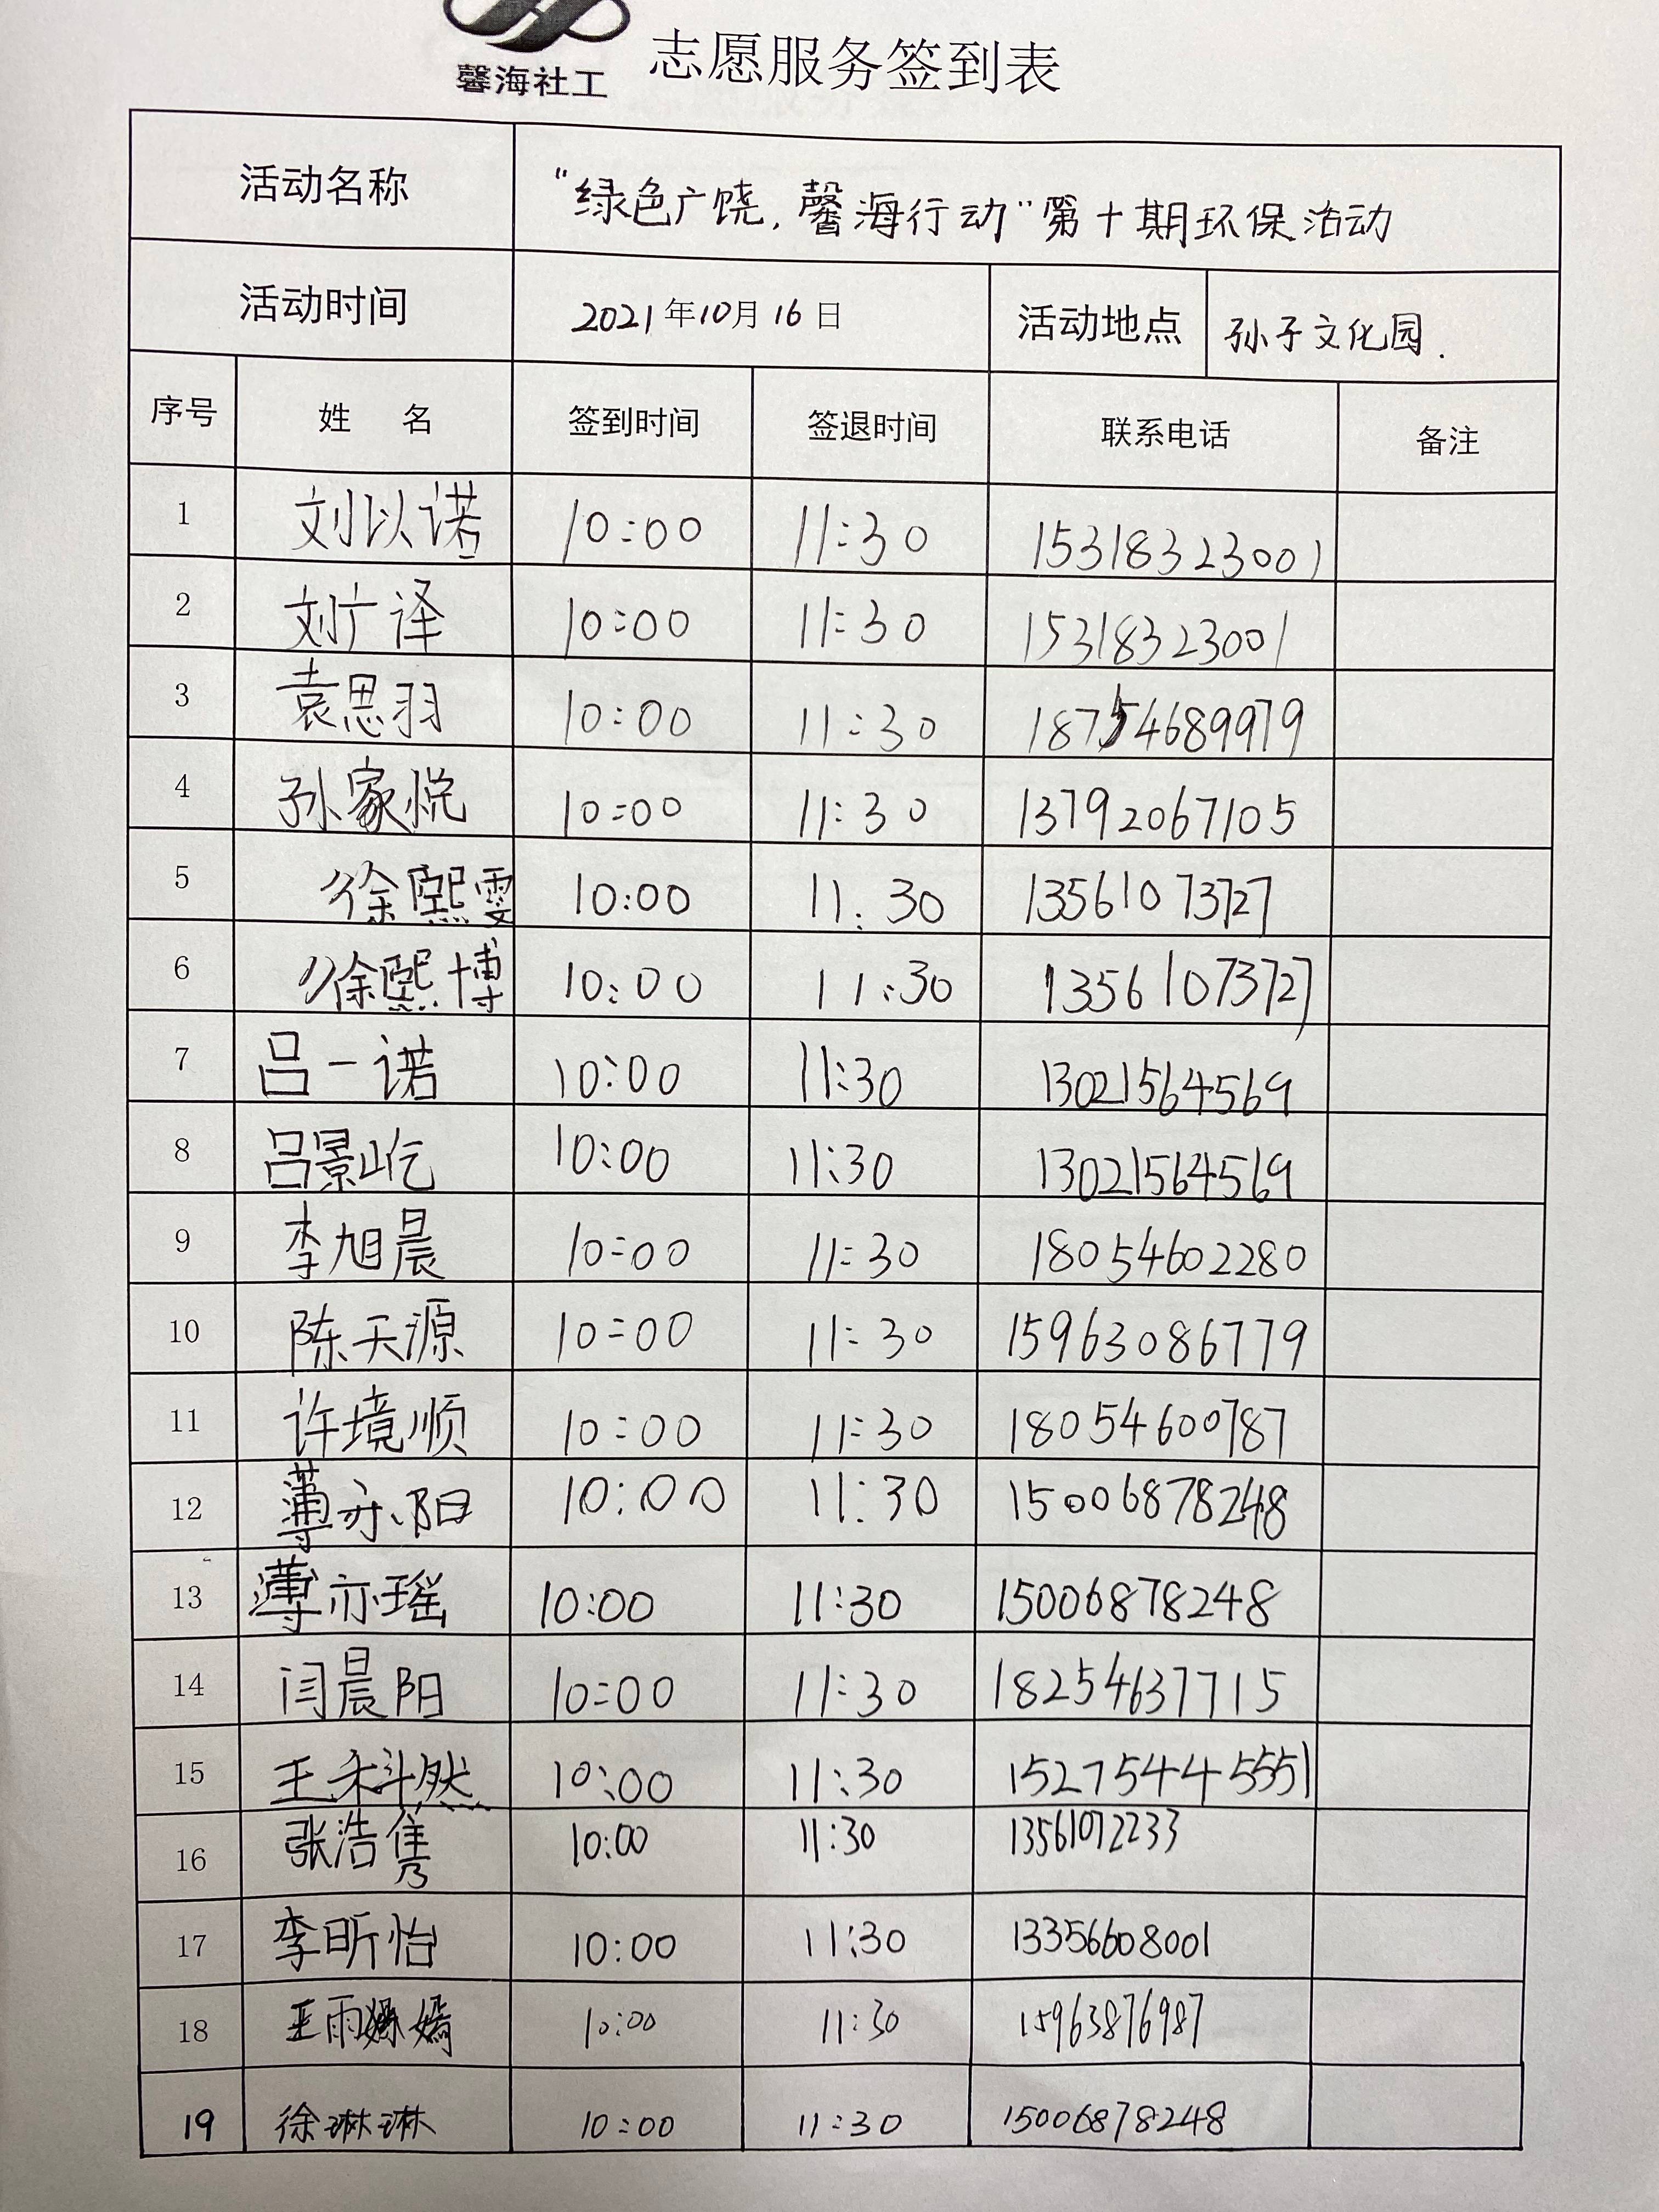 馨海社工 志愿服务签到表
活动名称 “绿色广饶,馨海行动”第十期环保活动
活动时间 2021年10月16日 活动地点 孙子文化园.
序号 姓 名 签到时间 签退时间 联系电话 备注
1 刘以诺 10:00 11:30 15318323001
2 刘广译 10:00 11:30 15318323001
3 袁思羽 10:00 11:30 18754689979
4 孙家悦 10:00 11:30 13792067105
5 徐熙雯 10:00 11:30 13561073727
6 徐熙博 10:00 11:30 13561073727
7 吕一诺 10:00 11:30 13021564569
8 吕景屹 10:00 11:30 13021564569
9 李旭晨 10:00 11:30 18054602280
10 陈天源 10:00 11:30 15963086779
11 许境顺 10:00 11:30 18054600787
12 薄亦阳 10:00 11:30 15006878248
13 薄亦瑶 10:00 11:30 15006878248
14 闫晨阳 10:00 11:30 18254637715
15 王科然 10:00 11:30 15275445551
16 张浩隽 10:00 11:30 13561072233
17 李昕怡 10:00 11:30 13356608001
18 王雨嫣 10:00 11:30 15963876987
19 徐琳琳 10:00 11:30 15006878248